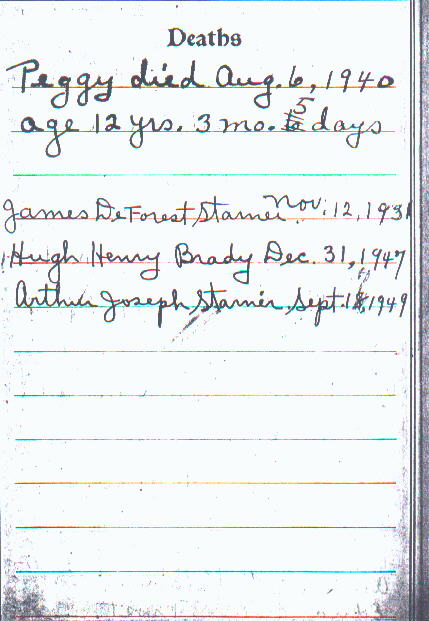 Deaths
Peggy died Aug. 6, 1940
age 12 yrs. 3 mo. 5 days
James DeForest Starner Nov. 12, 1931
Hugh Henry Brady Dec. 31, 1947
Arthur Joseph Starner Sept. 1949